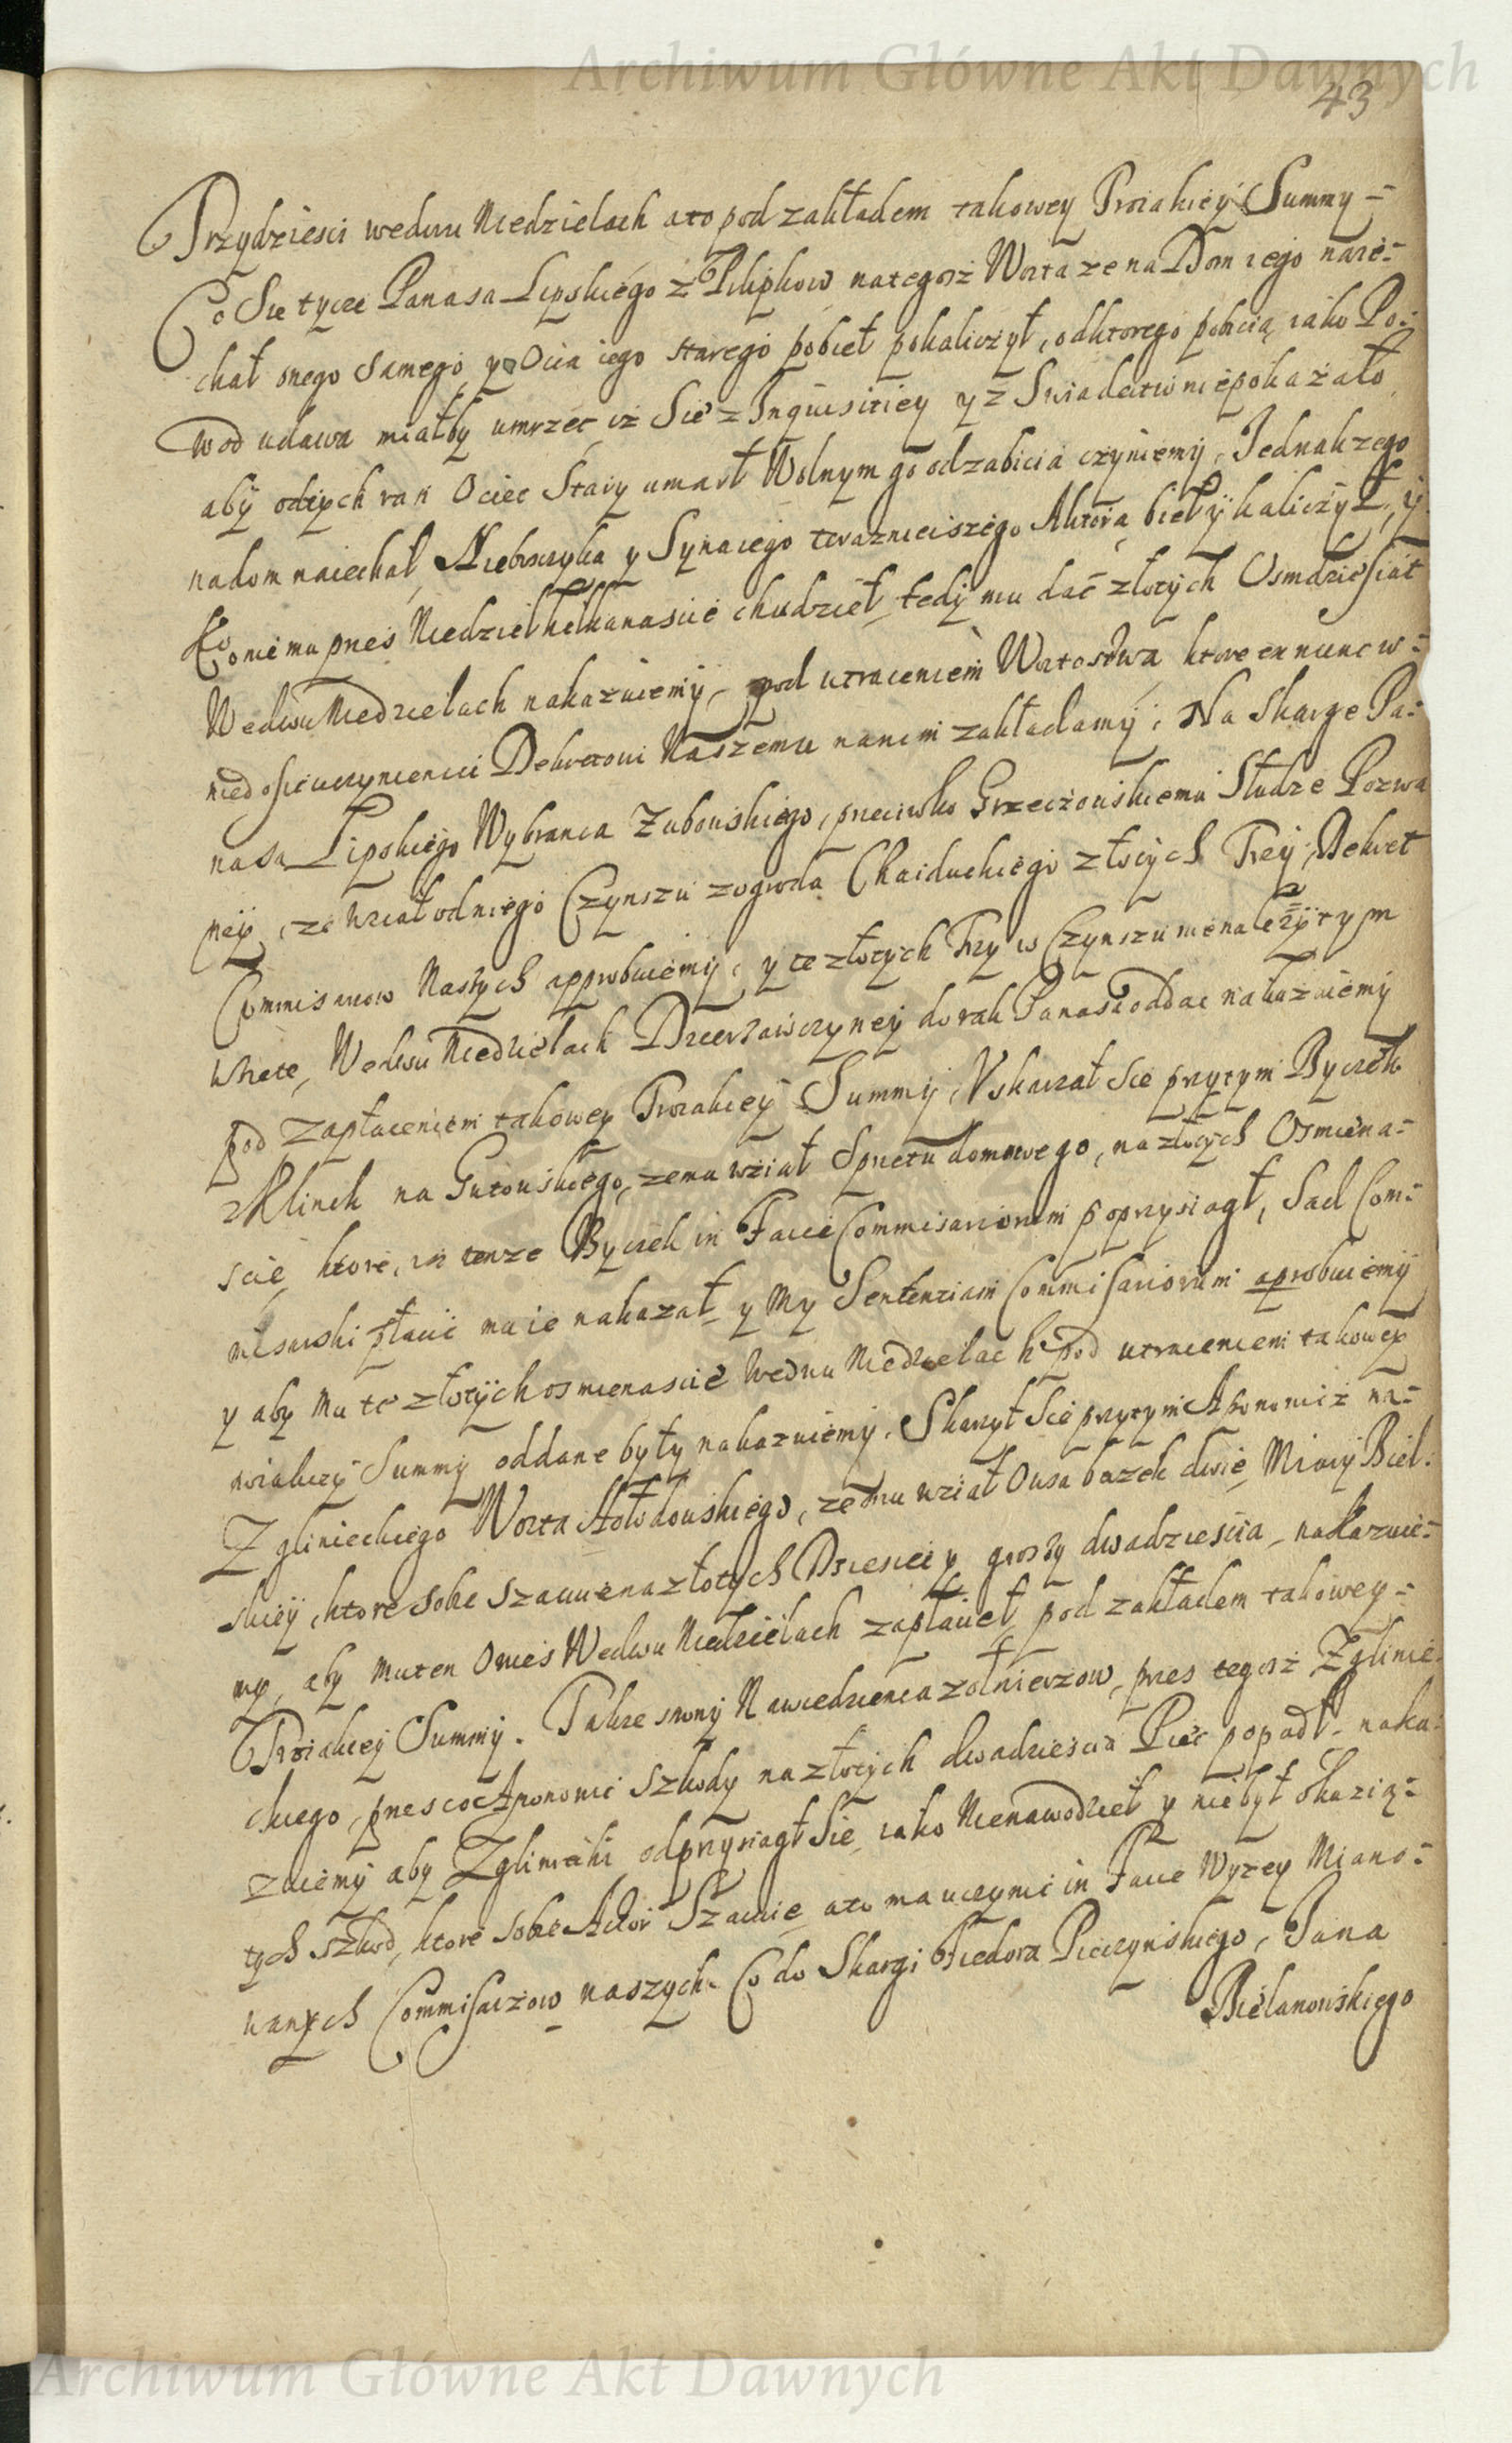 Archiwum Główne Akt Dawnych
43
Trzydziesci wedwu Niedzielach ato pod zakładem takowey Troiakiey Summy =
Co Sie tycze Panasa Lipskiego z Pilipkow na tegosz Woita ze na Dom iego naie=
chał onego samego y Oica iego starego pobieł pokaliczył, od ktorego pobicia iako Po=
wod udawa miałby umrzec iz Sie z Inquisitiey y z Swiadectw niepokazało
aby odtych ran Ociec Stary umarł Wolnym go odzabicia czyniemy, Jednak ze go
nadom naiechał, Niebosczyka y Syna iego teraznieiszego Aktora bieł y kaliczył, y
Ko niemu przes Niedziel kilkanascie chudzieł, tedy mu dać złotych Osmdziesiat
Wedwu Niedzielach nakazuiemy, pod utraceniem Woitostwa, ktore ex nunc w=
niedosicuczynieniu Dekretowi Naszemu nanim zakładamy; Na Skarge Pa=
nasa Lipskiego Wybranca Zubowskiego, przeciwko Grzeczowskiemu Słudze Pozwa
ney, ze wział odniego Czynszu z ogroda Chaiduckiego złotych Trzy, Dekret
Commisarzow Naszych approbuiemy, y te złotych Trzy w Czynszu nienależytym
wziete, Wedwu Niedzielach Dzierzawczyney do rak Panasa oddac nakazuiemy
pod zapłaceniem takowey Troiakiey Summy, Vskarzał sie przytym Byczek
z Klinek na Gutowskiego, ze mu wział Sprzetu domowego, na złotych Osmiena=
scie, ktore, iz tenze Byczek in Facie Commisariorum poprzysiagł, Sad Com=
misarski płacić mu ie nakazał, y My Sententiam Commisariorum aprobuiemy
y aby mu te złotych osmienascie Wedwu Niedzielach pod utraceniem takowey
troiakiey Summy oddane były nakazuiemy. Skarzył Sie przytym Apono miż na=
Zglinieckiego Woita Hołodowskiego, ze mu wział Owsa bazek dwie Miary Biel=
skiey, ktore sobie szacuie na złotych Dziesiec y groszy dwadziescia, nakazuie=
my, aby mu ten Owies Wedwu Niedzielach zapłacieł, pod zakładem takowey=
Troiakiey Summy. Takze strony Nawiedzienia zołnierzow, przes tegosz Zglinie=
ckiego, przes co Aponomi szkody na złotych dwadziescia Piec popadł, naka=
zuiemy aby Zgliniecki odprzysiagł Sie, iako Nienawodzieł y niebył okazia=
tych szkod, ktore sobie Aktor Szacuie, a to ma uczynić in Facie Wyzey Miano=
wanych Commisarzow naszych. Co do Skargi Fiedora Pieczynskiego, Jana
Bielanowskiego
Archiwum Główne Akt Dawnych